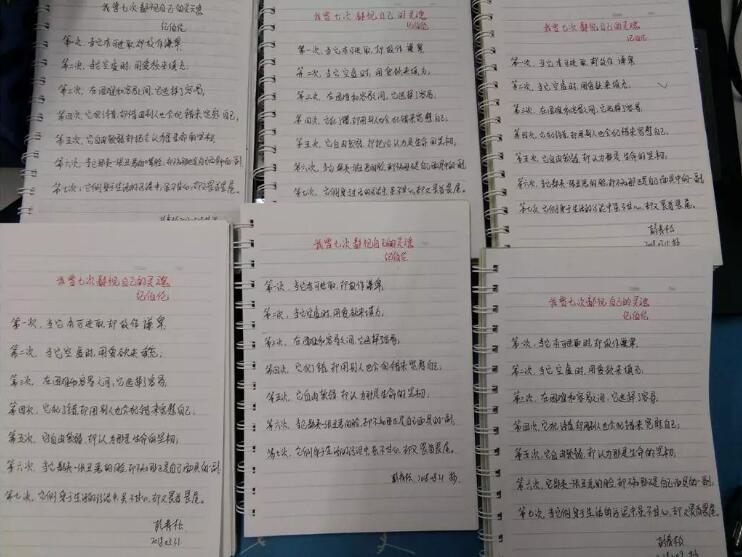 我曾七次鄙视自己的灵魂
纪伯伦
第一次,当它有可进取时,却故作谦卑
第二次,当它空虚时,用爱欲来填充。
第三次,在困难和容易之间,它选择了容易。
第四次,它犯错,却借由别人也会犯错来宽慰自己。
第五次,它自由软弱,却把它认为是生命的坚韧。
第六次,当它鄙夷一张丑恶的脸,却不知那正是自己面具中的一副。
第七次,它侧身于生活的污泥中虽不甘心,却又畏首畏尾。
我曾七次鄙视自己的灵魂
纪伯伦
第一次,当它有可进取,却故作谦卑
第二次,当它空虚时,用爱欲来填充,
第三次,在困难和容易之间,它选择了容易。
第四次,它犯错,却借由别人也会犯错来宽慰自己。
第五次,它自由软弱,却把它认为是生命的坚韧。
第六次,当它鄙夷一张丑恶的脸,却不知那正是自己面具中的一副
第七次,它侧身于生活的污泥中,虽不甘心,却又畏首畏尾。
我曾七次鄙视自己的灵魂
纪伯伦
第一次,当它有可进取时,却故作谦卑
第二次,当它空虚时,用爱欲来填充。
第三次,在困难和容易之间,它选择了容易。
第四次,它犯错,却借由别人也会犯错来宽慰自己。
第五次,它自由软弱,却认为是生命的坚韧。
第六次,当它鄙夷一张丑恶的脸,却不知那正是自己面具中的一副。
第七次,它侧身于生活的污泥中虽不甘心,却又畏首畏尾。
我曾七次鄙视自己的灵魂
纪伯伦
第一次,当它有可进取时,却故作谦卑
第二次,当它空虚时,用爱欲来填充;
第三次,在困难和容易之间,它选择了容易。
第四次,它犯错,却借由别人也会犯错来宽慰自己。
第五次,它自由软弱,却认为那是生命的坚韧。
第六次,当它鄙夷一张丑恶的脸,却不知那正是自己面具的一副
第七次,它侧身于生活的污泥中虽不甘心,却又畏首畏尾。
2018.03.11
我曾七次鄙视自己的灵魂
纪伯伦
第一次,当它有可进取时,却故作谦卑
第二次,当它空虚时,用爱欲来填充。
第三次,在困难和容易之间,它选择容易。
第四次,它犯了错,却用别人也会犯错来宽慰自己。
第五次,它自由软弱,却认为那是生命的坚韧。
第六次,当它鄙夷一张丑恶的脸,却不知那正是自己面具的一副。
第七次,它侧身于生活的污泥中虽不甘心,却又畏首畏尾。
我曾七次鄙视自己的灵魂
纪伯伦
第一次,当它有可进取时,却故作谦卑。
第二次,当它空虚时,用爱欲来填充。
第三次,在困难和容易之间,它选择了容易。
第四次,它犯错,却借由别人也会犯错来宽慰自己。
第五次,它自由软弱,却认为那是生命的坚韧。
第六次,它鄙夷一张丑恶的脸,却不知那正是自己面具中的一副。
第七次,当它侧身于生活的污泥中虽不甘心,却又畏首畏尾。